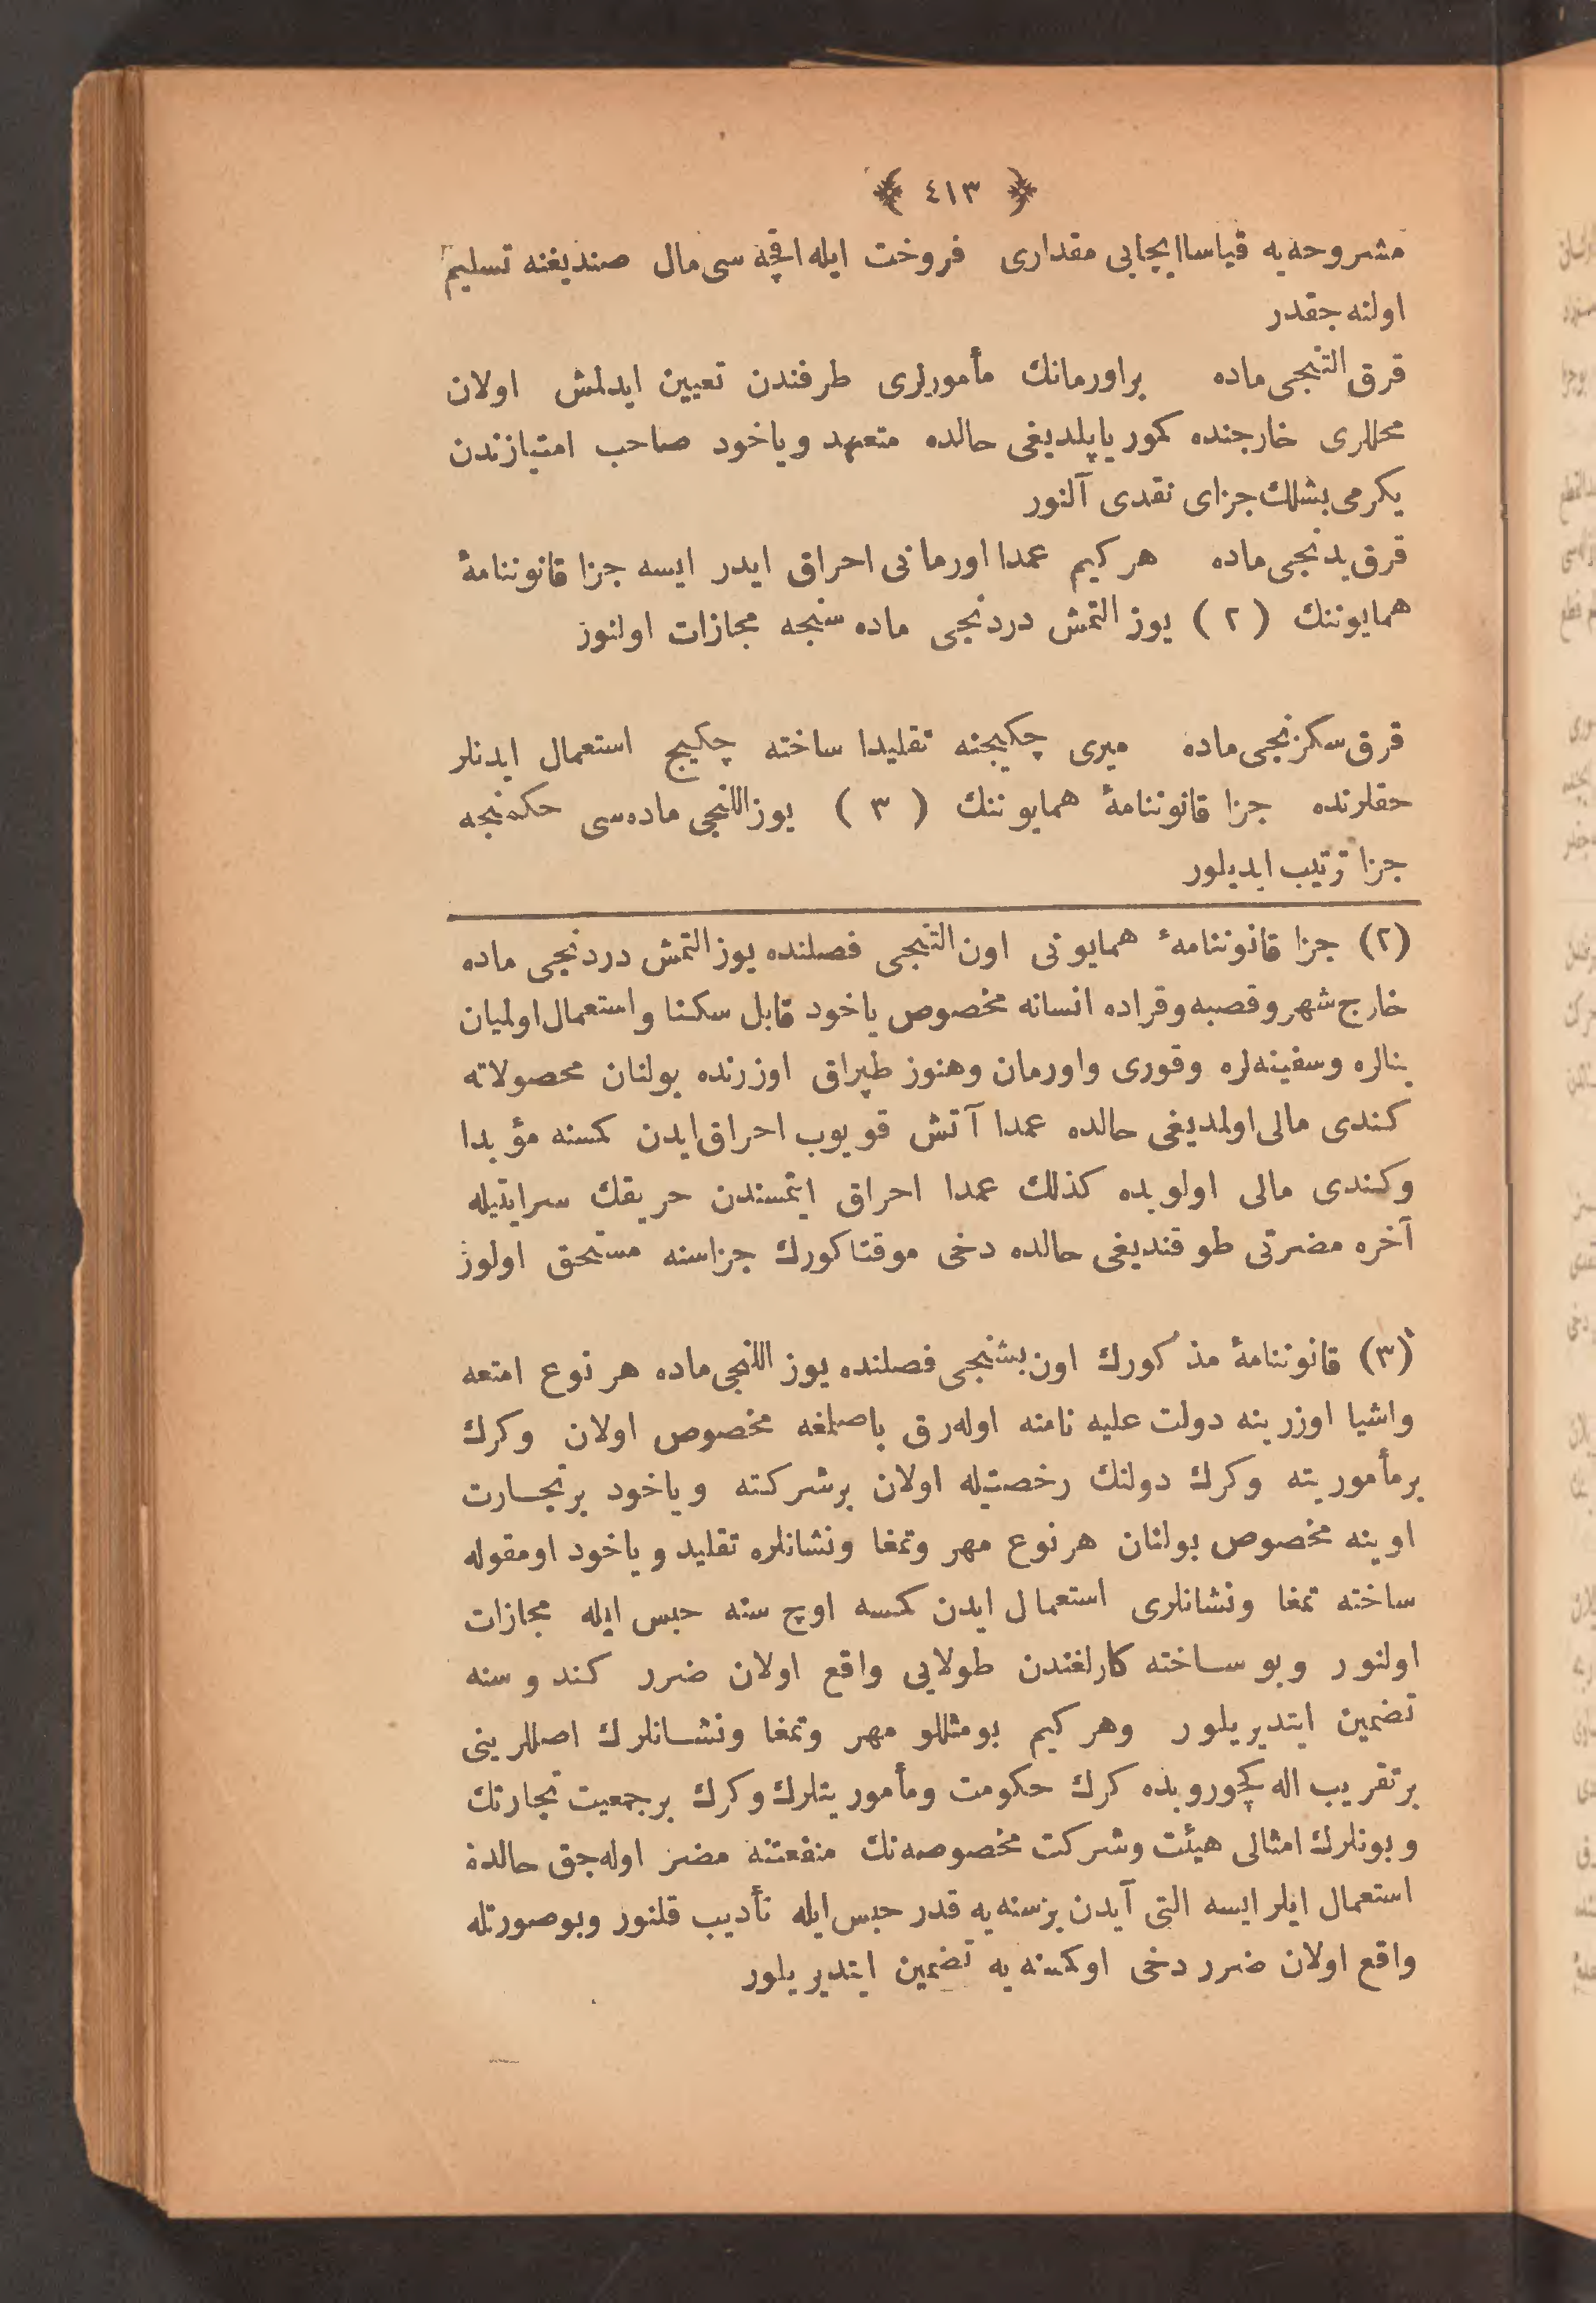 ﴿ ٤١٣ ﴾
مشروحه‌یه قیاسا ایجابی مقداری فروخت ایله اقچه‌سی مال صندیغنه تسلیم
اولنه جقدر
قرق التنجی ماده براورمانك مأمورلری طرفندن تعیین ایدلمش اولان
محللری خارجنده كمور یاپلدیغی حالده متعهد ویاخود صاحب امتیازندن
یكرمی بشلك جزای نقدی آلنور
قرق یدنجی ماده هر كیم عمدا اورمانی احراق ایدر ایسه جزا قانوننامهٔ
همایوننك (٢) یوز التمش دردنجی ماده سنجه مجازات اولنور
قرق سكزنجی ماده میری چكیجنه تقلیدا ساخته چكیج استعمال ایدنلر
حقلرنده جزا قانوننامهٔ همایوننك (٣) یوز اللنجی ماده‌سی حكمنجه
جزا ترتیب ایدیلور
(٢) جزا قانوننامهٔ همایونی اون التنجی فصلنده یوز التمش دردنجی ماده
خارج شهر وقصبه وقراده انسانه مخصوص یاخود قابل سكنا واستعمال اولمیان
بنالره وسفینه‌لره وقوری واورمان وهنوز طپراق اوزرنده بولنان محصولاته
كندی مالی اولمدیغی حالده عمدا آتش قویوب احراق ایدن كمسنه مؤبدا
وكندی مالی اولوبده كذلك عمدا احراق ایتمسندن حریقك سرایتیله
آخره مضرتی طوقندیغی حالده دخی موقتا كورك جزاسنه مستحق اولور
(٣) قانوننامهٔ مذكورك اون بشنجی فصلنده یوز اللنجی ماده هر نوع امتعه
واشیا اوزرینه دولت علیه نامنه اوله‌رق باصلمغه مخصوص اولان وكرك
برمأموریته وكرك دولتك رخصتیله اولان برشركته ویاخود برتجارت
اوینه مخصوص بولنان هر نوع مهر وتمغا ونشانلره تقلید ویاخود اومقوله
ساخته تمغا ونشانلری استعمال ایدن كمسه اوچ سنه حبس ایله مجازات
اولنور وبو ساخته كارلغندن طولایی واقع اولان ضرر كندوسنه
تضمین ایتدیریلور وهر كیم بومثللو مهر وتمغا ونشانلرك اصللرینی
برتقریب اله كچوروبده كرك حكومت ومأموریتلرك وكرك برجمعیت تجارتك
وبونلرك امثالی هیئت وشركت مخصوصه‌نك منفعتنه مضر اوله‌جق حالده
استعمال ایلر ایسه التی آیدن برسنه‌یه قدر حبس ایله تأدیب قلنور وبوصورتله
واقع اولان ضرر دخی اوكمسنه‌یه تضمین ایتدیریلور